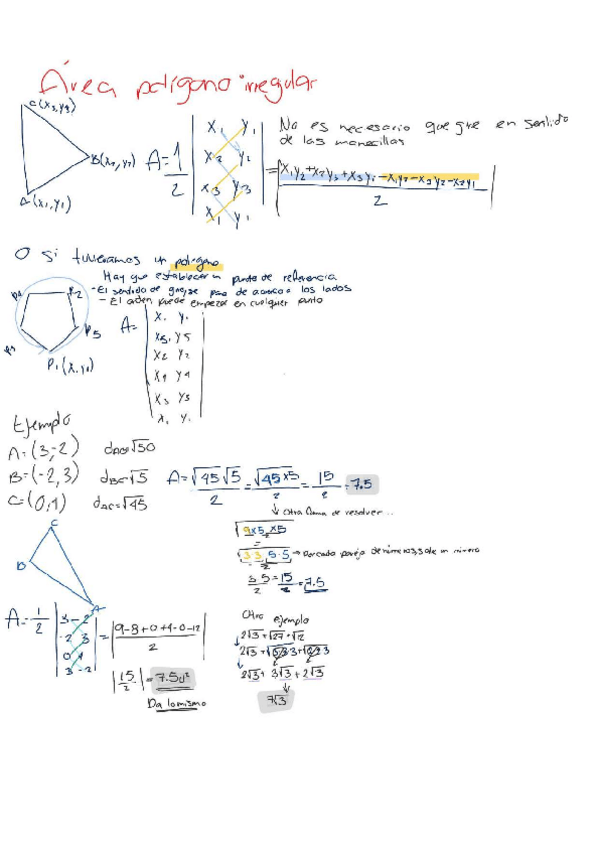 Área polígono irregular
C(x3,y3)
B(x2,y2)
A(x1,y1)
A=1/2 | x1 y1
x2 y2
x3 y3
x1 y1 |
No es necesario que gire en sentido
de las manecillas
= | x1y2+x2y3+x3y1-x1y3-x3y2-x2y1 / 2 |
O si tuvieramos un polígono
Hay que establecer un punto de referencia
- El sentido de gire de acuerdo a los lados
- El orden puede empezar en cualquier punto
P2
P5
P1(x1,y1)
A= | x1 y1
x5, y5
x2 y2
x4 y4
x3 y3
x1 y1 |
Ejemplo
A=(3,-2) dAB=√50
B=(-2,3) dBC=√5
C=(0,4) dAC=√45
A=√45√5/2=√45×5/2=15/2=7.5
↳ Otra forma de resolver...
√9×5×5
=
√3·3·5·5 → Por cada pareja de números sale un número
2
3·5/2=15/2=7.5
C
B
A
A=1/2 | 3 -2
-2 3
0 4
3 -2 | = | 9-8+0+4-0-12 / 2 |
|15/2|=7.5u²
Da lo mismo
Otro ejemplo
2√3+√27+√12
2√3+√3·3·3+√2·2·3
2√3+3√3+2√3
7√3